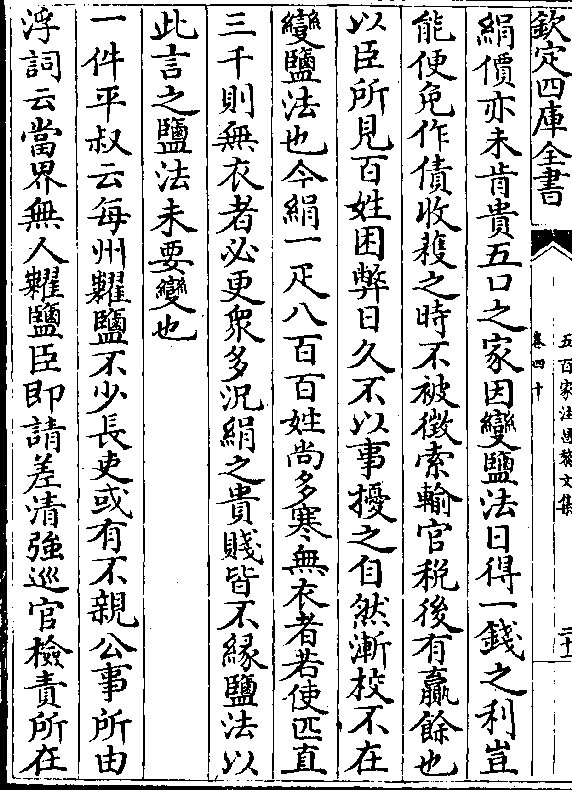 欽定四庫全書
五百家注昌黎文集
卷四十
二十
絹價亦未肯貴五口之家因變鹽法日得一錢之利豈
能便免作債收穫之時不被徵索輸官稅後有贏餘也
以臣所見百姓困弊日久不以事擾之自然漸校不在
變鹽法也今絹一疋八百百姓尚多寒無衣者若使匹直
三千則無衣者必更衆多況絹之貴賤皆不緣鹽法以
此言之鹽法未要變也
一件平叔云每州糶鹽不少長吏或有不親公事所由
浮詞云當界無人糶鹽臣即請差清強巡官檢責所在